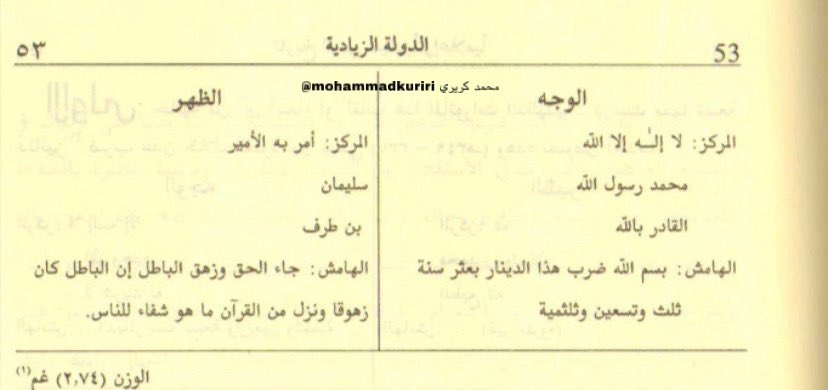 53 الدولة الزيادية ٥٣
محمد كريري @mohammadkuriri
الوجه
المركز: لا إله إلا الله
محمد رسول الله
القادر بالله
الهامش: بسم الله ضرب هذا الدينار بعثر سنة
ثلث وتسعين وثلثمية
الظهر
المركز: أمر به الأمير
سليمان
بن طرف
الهامش: جاء الحق وزهق الباطل إن الباطل كان
زهوقا ونزل من القرآن ما هو شفاء للناس.
الوزن (٢,٧٤) غم(١)